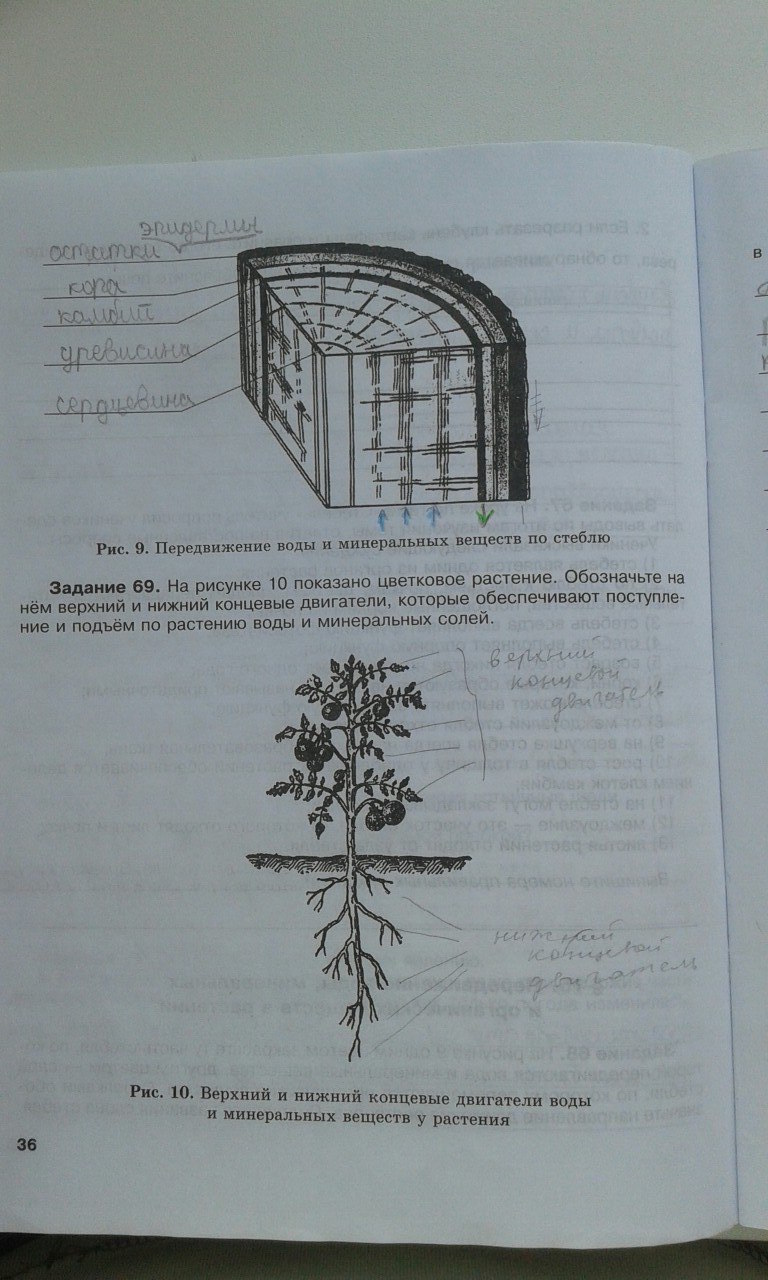 эпидермы
остатки
кора
камбий
древисина
сердцевина
Рис. 9. Передвижение воды и минеральных веществ по стеблю
Задание 69. На рисунке 10 показано цветковое растение. Обозначьте на
нём верхний и нижний концевые двигатели, которые обеспечивают поступле-
ние и подъём по растению воды и минеральных солей.
верхний
концевой
двигатель
нижний
концевой
двигатель
Рис. 10. Верхний и нижний концевые двигатели воды
и минеральных веществ у растения
36
в